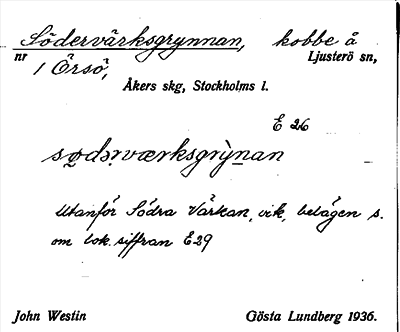 Södervärksgrynnan, kobbe å
nr Ljusterö sn,
1 Örsö,
Åkers skg, Stockholms l.
E 26
sødərværksgrỳnan
Utanför Södra Värkan, vik, belägen s.
om bok.siffran E29
John Westin Gösta Lundberg 1936.